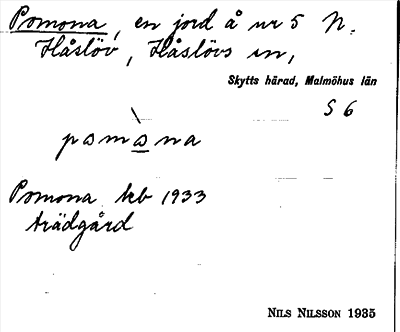 Pomona, en jord å nr 5 N.
Håslöv, Håslövs sn,
Skytts härad, Malmöhus län
S 6
pomòna
Pomona kb 1933
trädgård
NILS NILSSON 1935